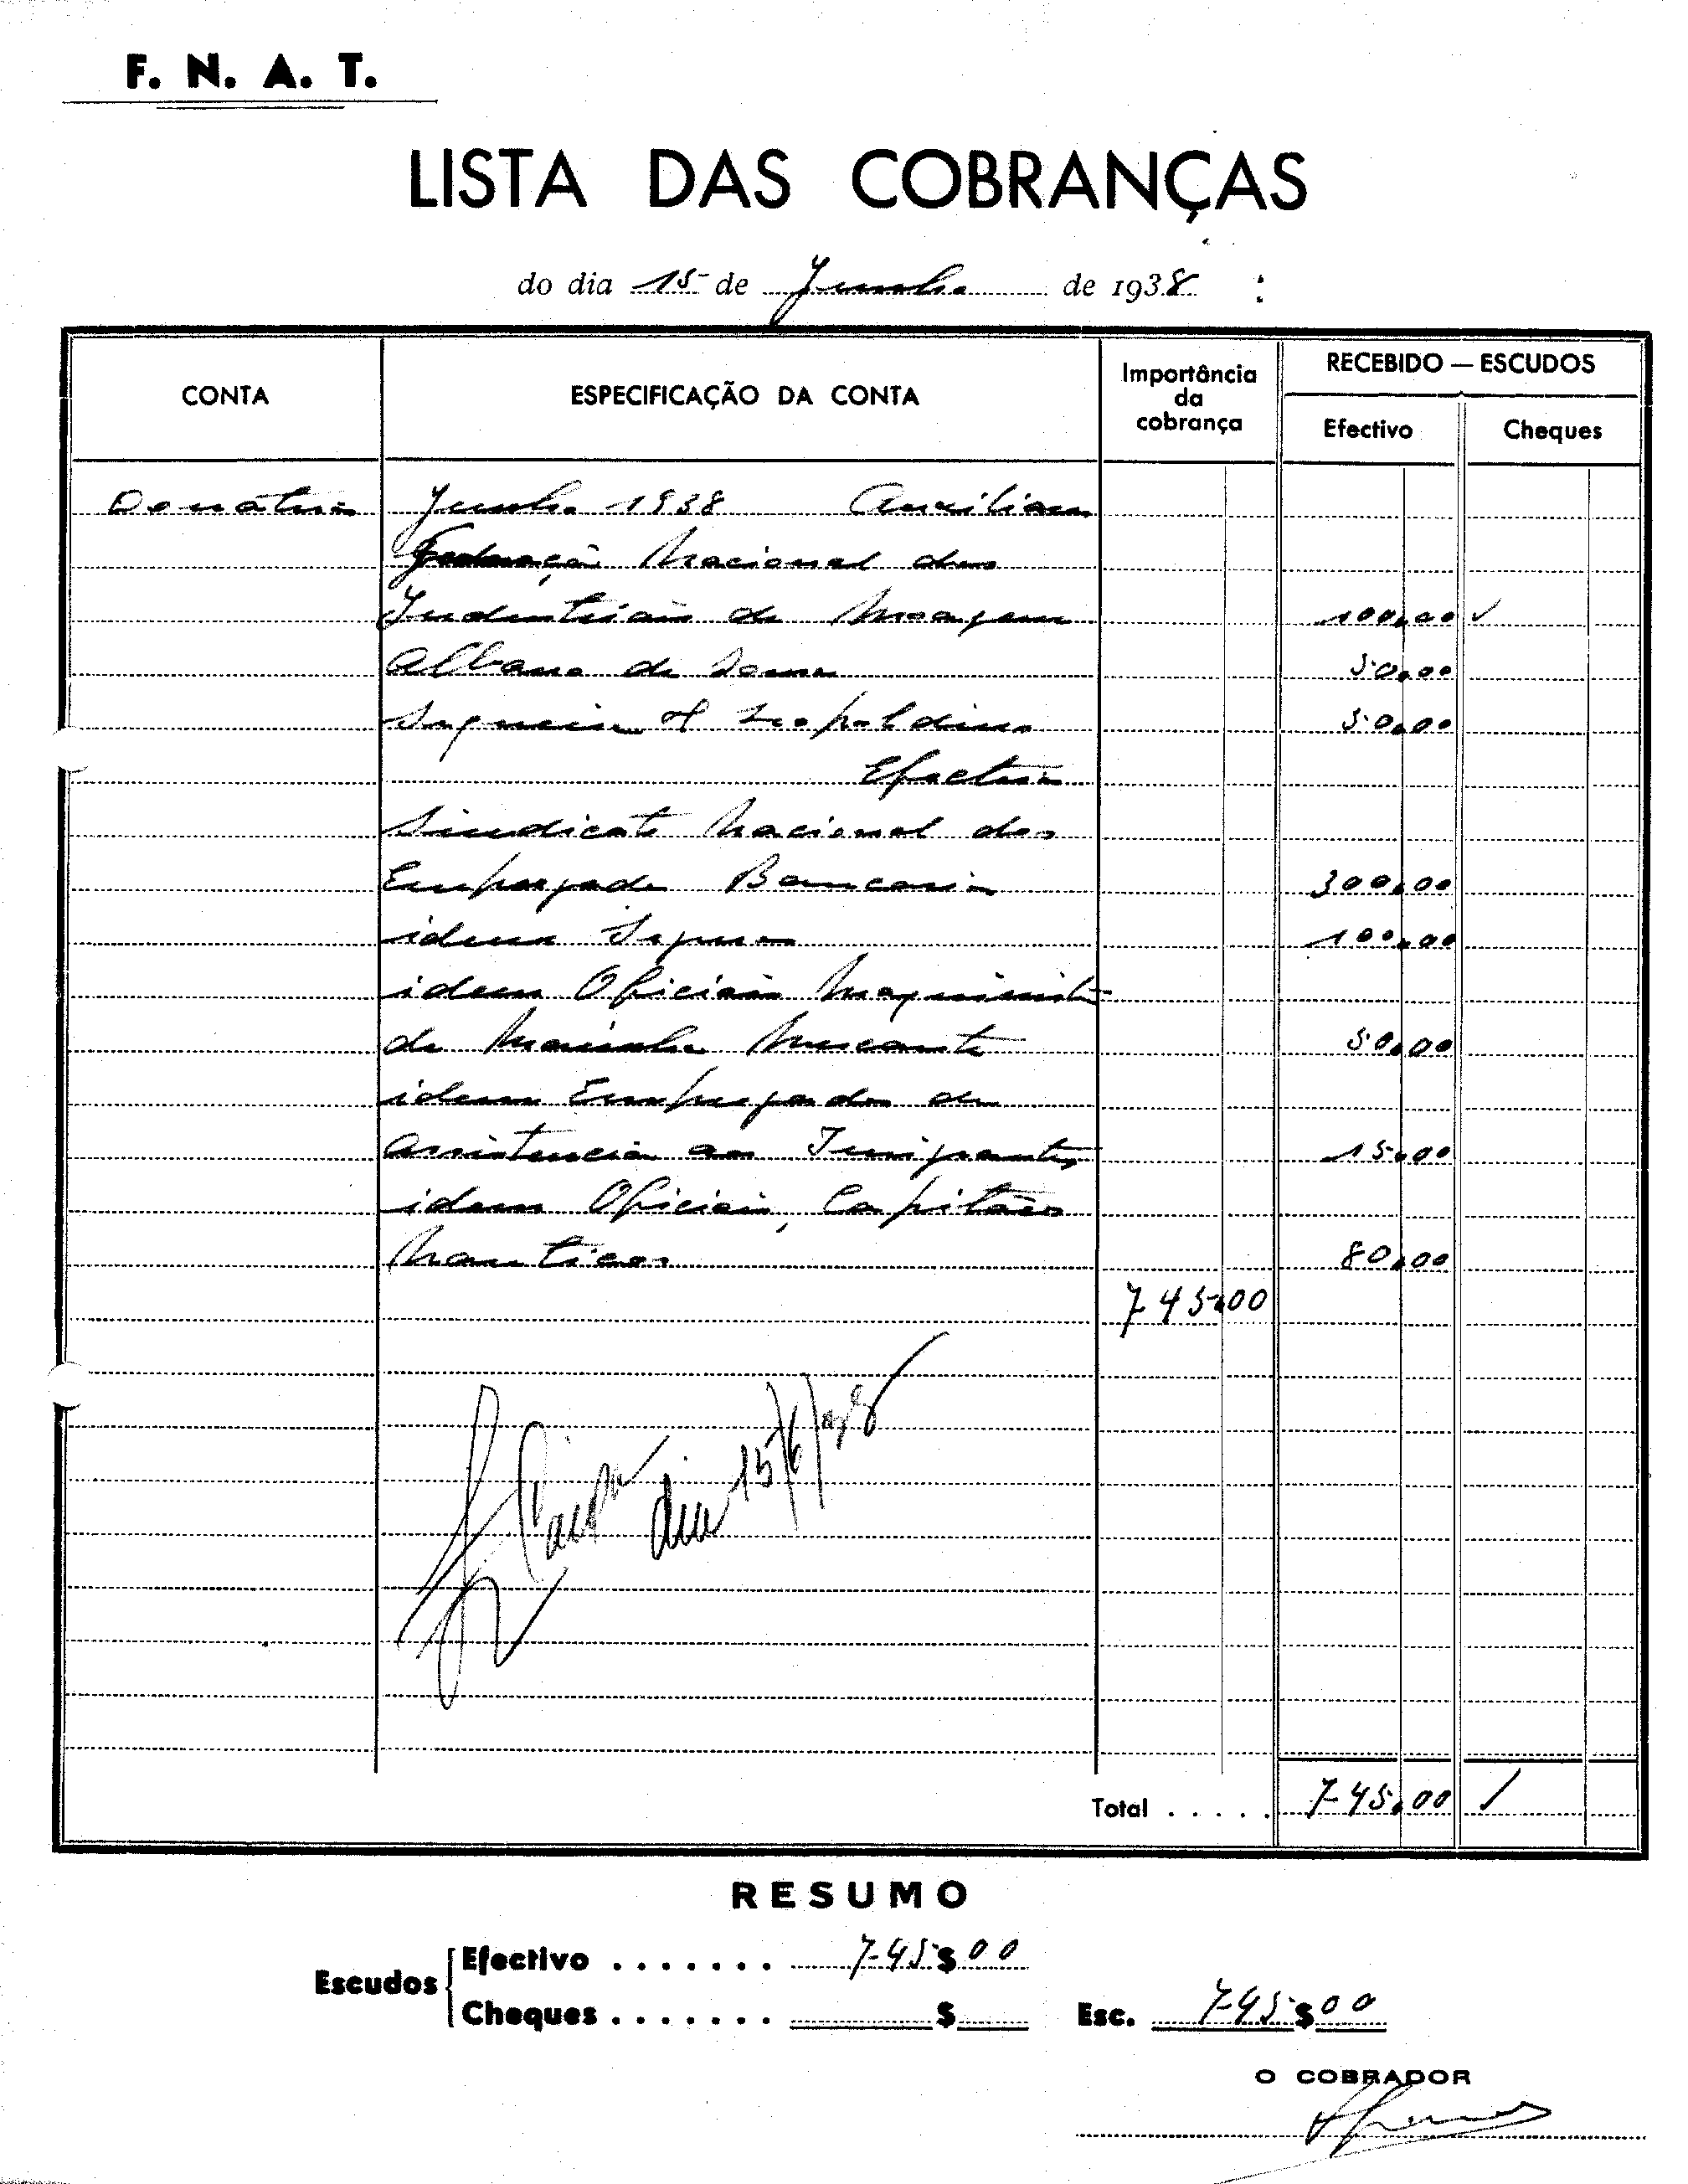 F. N. A. T.
LISTA DAS COBRANÇAS
do dia 15 de Junho de 1938
CONTA
ESPECIFICAÇÃO DA CONTA
Importância
da
cobrança
RECEBIDO — ESCUDOS
Efectivo
Cheques
Donativos Junho 1938 Auxiliares
Federação Nacional dos
Industriais de Moagem 100,00 ✓
Albano de Sousa 50,00
Leopoldino 50,00
Efectivos
Sindicato Nacional dos
Empregados Bancarios 300,00
idem Seguros 100,00
idem Oficiais Maquinistas
da Marinha Mercante 50,00
idem Empregados de
Assistencia aos Emigrantes 15,00
idem Oficiais, Capitães
Nauticos 80,00
745,00
Caixa dia 15/6/938
Total . . . . . 745,00 /
RESUMO
Escudos
Efectivo . . . . . . . 745$00
Cheques . . . . . . . $
Esc. 745$00
O COBRADOR